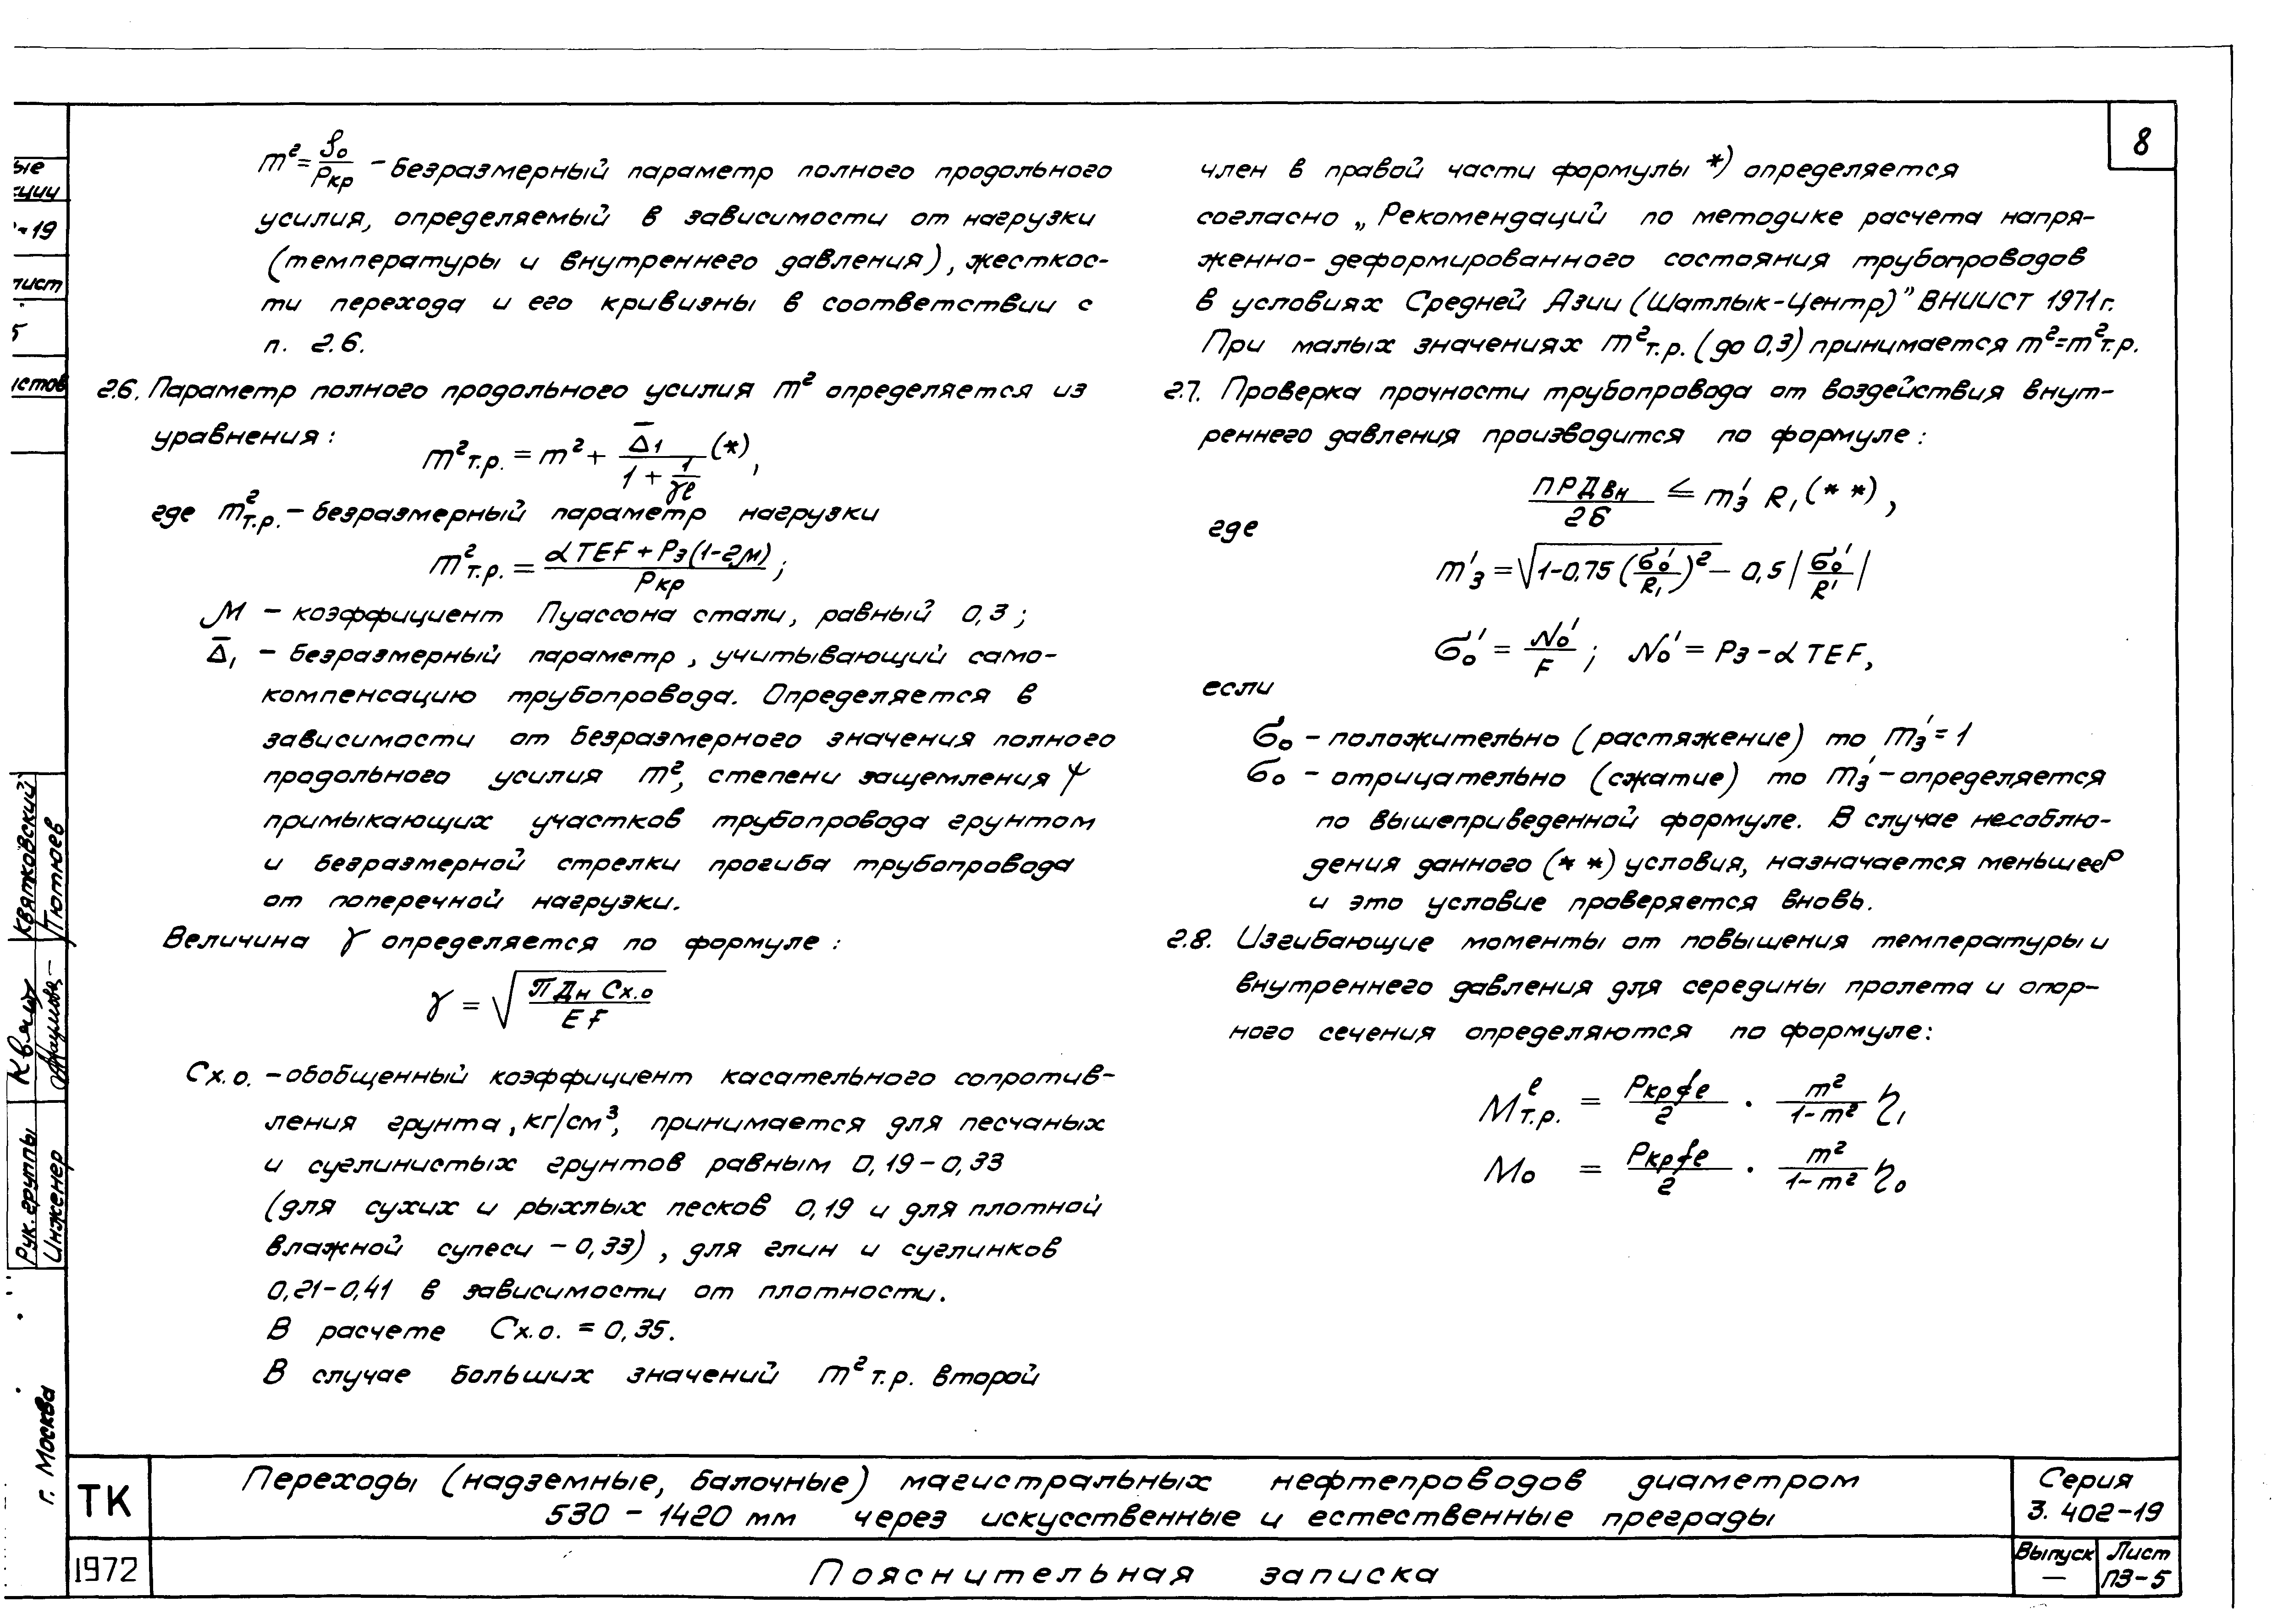 8
m² = S₀/Pкр – безразмерный параметр полного продольного
усилия, определяемый в зависимости от нагрузки
(температуры и внутреннего давления), жесткос-
ти перехода и его кривизны в соответствии с
п. 2.6.
2.6. Параметр полного продольного усилия m² определяется из
уравнения:
m²т.р. = m² + Δ̄1/(1 + 1/γℓ) (*),
где m²т.р. – безразмерный параметр нагрузки
m²т.р. = (αTEF + Pэ(1-2μ))/Pкр;
μ – коэффициент Пуассона стали, равный 0,3;
Δ̄₁ – безразмерный параметр, учитывающий само-
компенсацию трубопровода. Определяется в
зависимости от безразмерного значения полного
продольного усилия m², степени защемления ψ
примыкающих участков трубопровода грунтом
и безразмерной стрелки прогиба трубопровода
от поперечной нагрузки.
Величина γ определяется по формуле:
γ = √(ПДн Сх.о/EF)
Сх.о. – обобщенный коэффициент касательного сопротив-
ления грунта, кг/см³, принимается для песчаных
и суглинистых грунтов равным 0,19–0,33
(для сухих и рыхлых песков 0,19 и для плотной
влажной супеси – 0,33), для глин и суглинков
0,21–0,41 в зависимости от плотности.
В расчете Сх.о. = 0,35.
В случае больших значений m²т.р. второй
член в правой части формулы *) определяется
согласно „Рекомендаций по методике расчета напря-
женно-деформированного состояния трубопроводов
в условиях Средней Азии (Шатлык-Центр)" ВНИИСТ 1971 г.
При малых значениях m²т.р. (до 0,3) принимается m²=m²т.р.
2.7. Проверка прочности трубопровода от воздействия внут-
реннего давления производится по формуле:
ПРДвн/2δ ≤ m'₃ R₁ (* *),
где
m'₃ = √(1-0,75(σ₀'/R₁)²) – 0,5|σ₀'/R'|
σ₀' = N₀'/F; N₀' = Pэ - αTEF,
если
σ₀ – положительно (растяжение) то m₃' = 1
σ₀ – отрицательно (сжатие) то m₃' – определяется
по вышеприведенной формуле. В случае несоблю-
дения данного (* *) условия, назначается меньшее Р
и это условие проверяется вновь.
2.8. Изгибающие моменты от повышения температуры и
внутреннего давления для середины пролета и опор-
ного сечения определяются по формуле:
Mℓт.р. = Pкр fe/2 · m²/(1-m²) η₁
M₀ = Pкр fe/2 · m²/(1-m²) η₀
ТК
Переходы (надземные, балочные) магистральных нефтепроводов диаметром
530 – 1420 мм через искусственные и естественные преграды
Серия
3.402-19
1972
Пояснительная записка
Выпуск
—
Лист
ПЗ-5
Рук. группы Квятковский
Инженер Тютюев
г. Москва